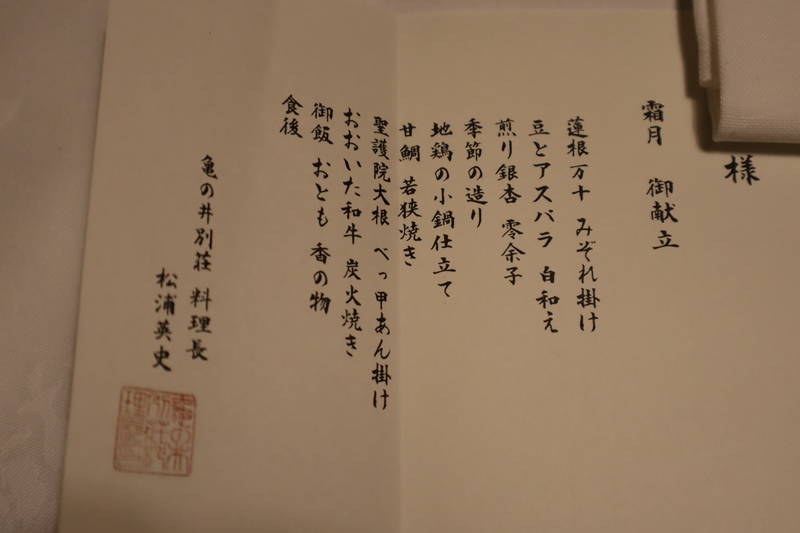 様
霜月 御献立
蓮根万十 みぞれ掛け
豆とアスパラ 白和え
煎り銀杏 零余子
季節の造り
地鶏の小鍋仕立て
甘鯛 若狭焼き
聖護院大根 べっ甲あん掛け
おおいた和牛 炭火焼き
御飯 おとも 香の物
食後
亀の井別荘 料理長
松浦英史